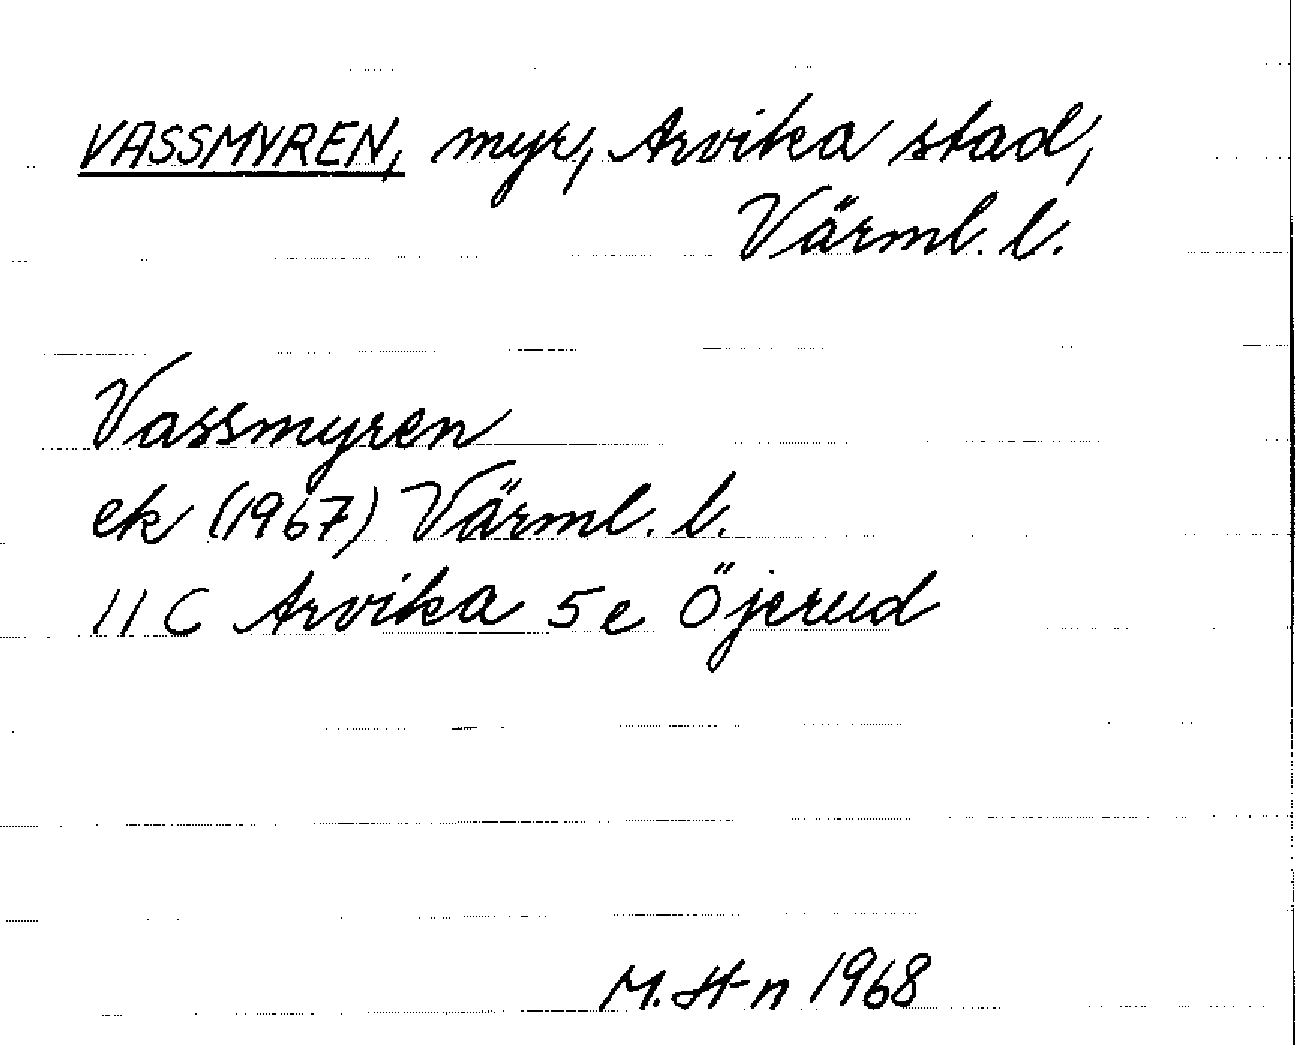 VASSMYREN, myr, Arvika stad,
Värml. l.
Vassmyren
ek (1967) Värml. l.
11 C Arvika 5 e Öjerud
M. H-n 1968